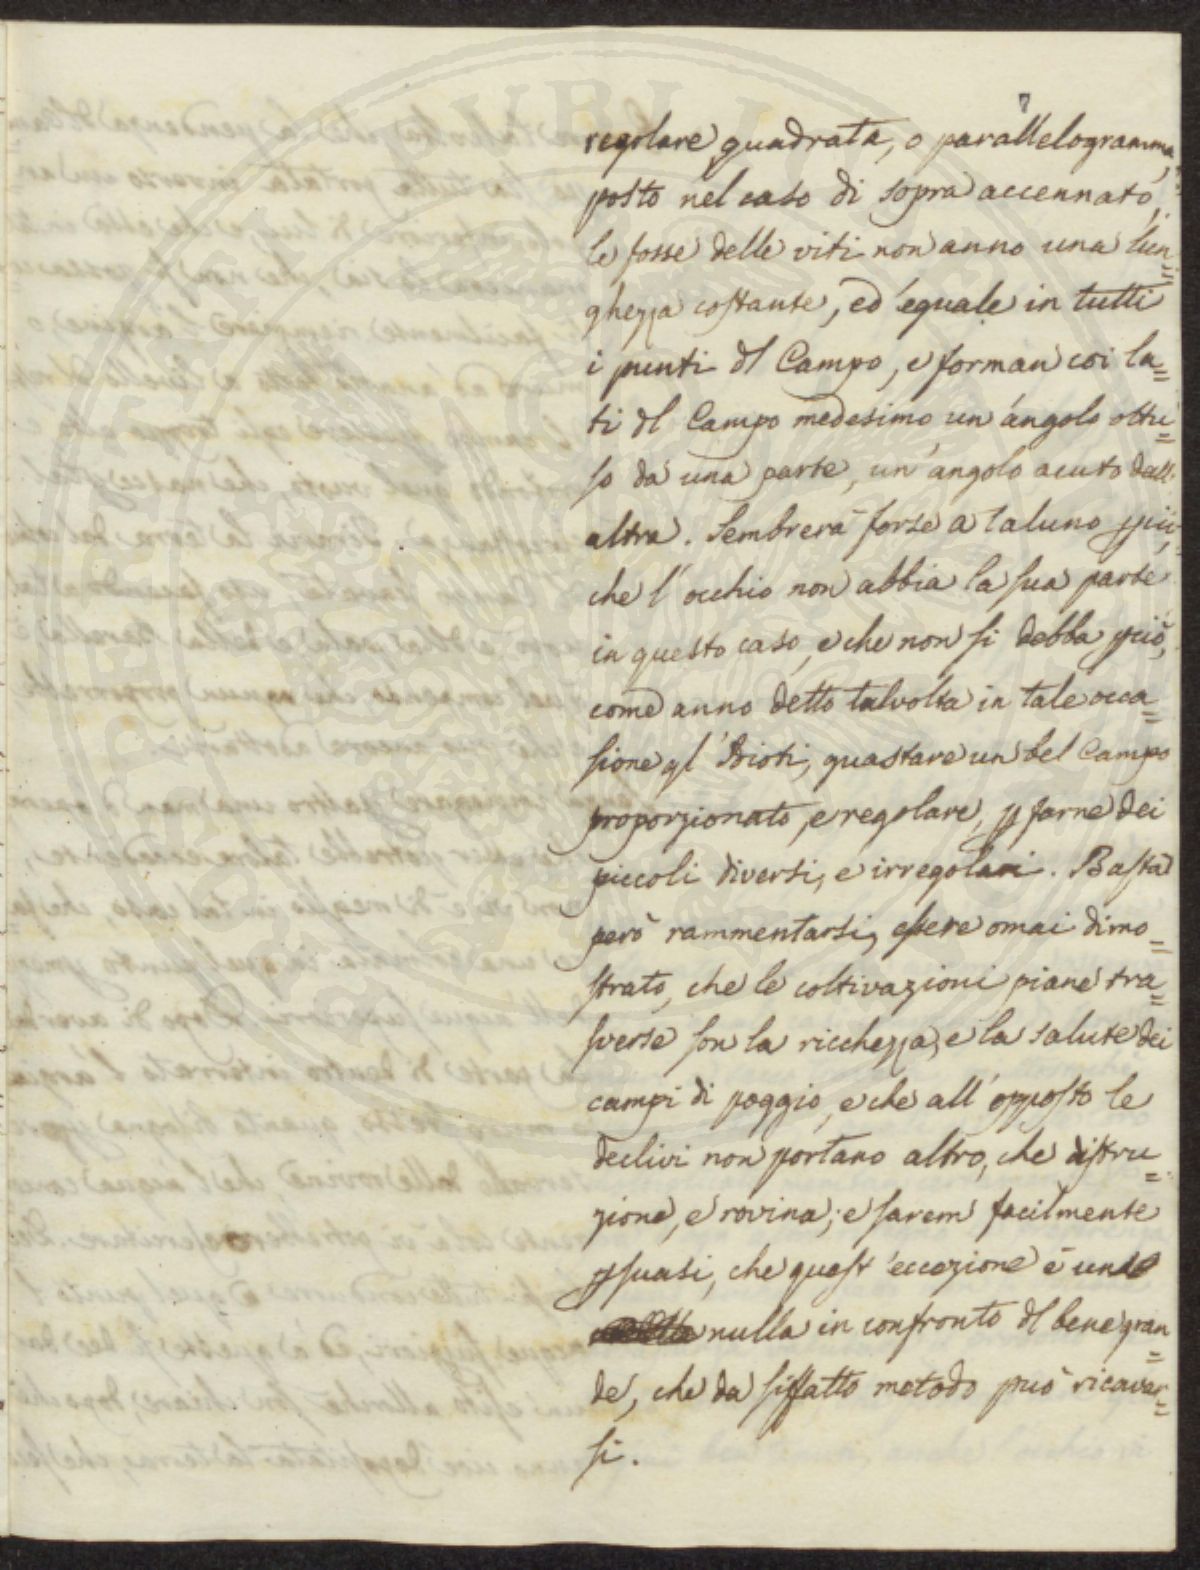 7
regolare quadrata, o parallelogramma,
posto nel caso di sopra accennato,
le fosse delle viti non anno una lun=
ghezza costante, ed eguale in tutti
i punti dl Campo, e forman coi la=
ti dl Campo medesimo un' angolo ottu=
so da una parte, un' angolo acuto dall'
altra. Sembrerà forse a taluno ppiù,
che l'occhio non abbia la sua parte
in questo caso, e che non si debba ppiò,
come anno detto talvolta in tale occa=
sione gl' Idioti, guastare un bel Campo
proporzionato, e regolare, p farne dei
piccoli diversi, e irregolari. Basta
però rammentarsi, essere omai dimo=
strato, che le coltivazioni piane tra=
sverse son la ricchezza, e la salute dei
campi di poggio, e che all' opposto le
declivi non portano altro, che distru=
zione, e rovina; e sarem facilmente
psuasi, che quest' eccezione è un
nulla in confronto dl bene gran=
de, che da siffatto metodo può ricavar=
si.